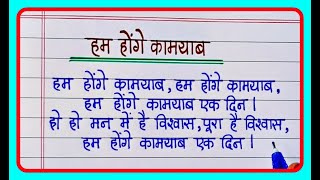 हम होंगे कामयाब
हम होंगे कामयाब, हम होंगे कामयाब,
हम होंगे कामयाब एक दिन।
हो हो मन में है विश्वास, पूरा है विश्वास,
हम होंगे कामयाब एक दिन।